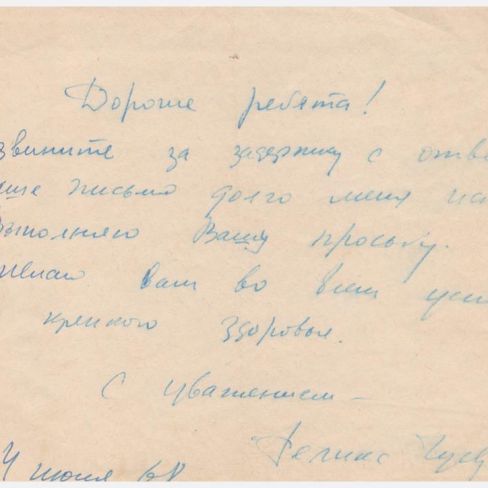 Дорогие ребята!
звините за задержку с отве
аше письмо долго меня иск
Выполняю Вашу просьбу.
желаю Вам во всем усп
крепкого здоровья.
С уважением —
4 июня 68